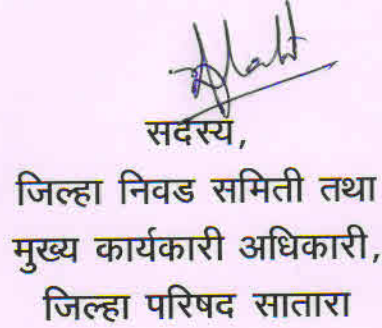 सदस्य,
जिल्हा निवड समिती तथा
मुख्य कार्यकारी अधिकारी,
जिल्हा परिषद सातारा